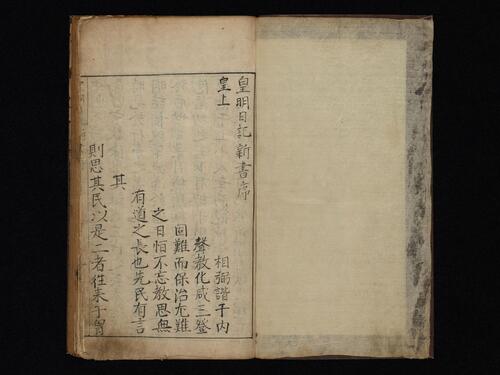 皇明日記新書序
皇上
相弼諧于内
聲教化咸三登
回難而保治尤難
之日怕不忘教思無
有道之長也先民有言
其
則思其民以是二者往来于胃